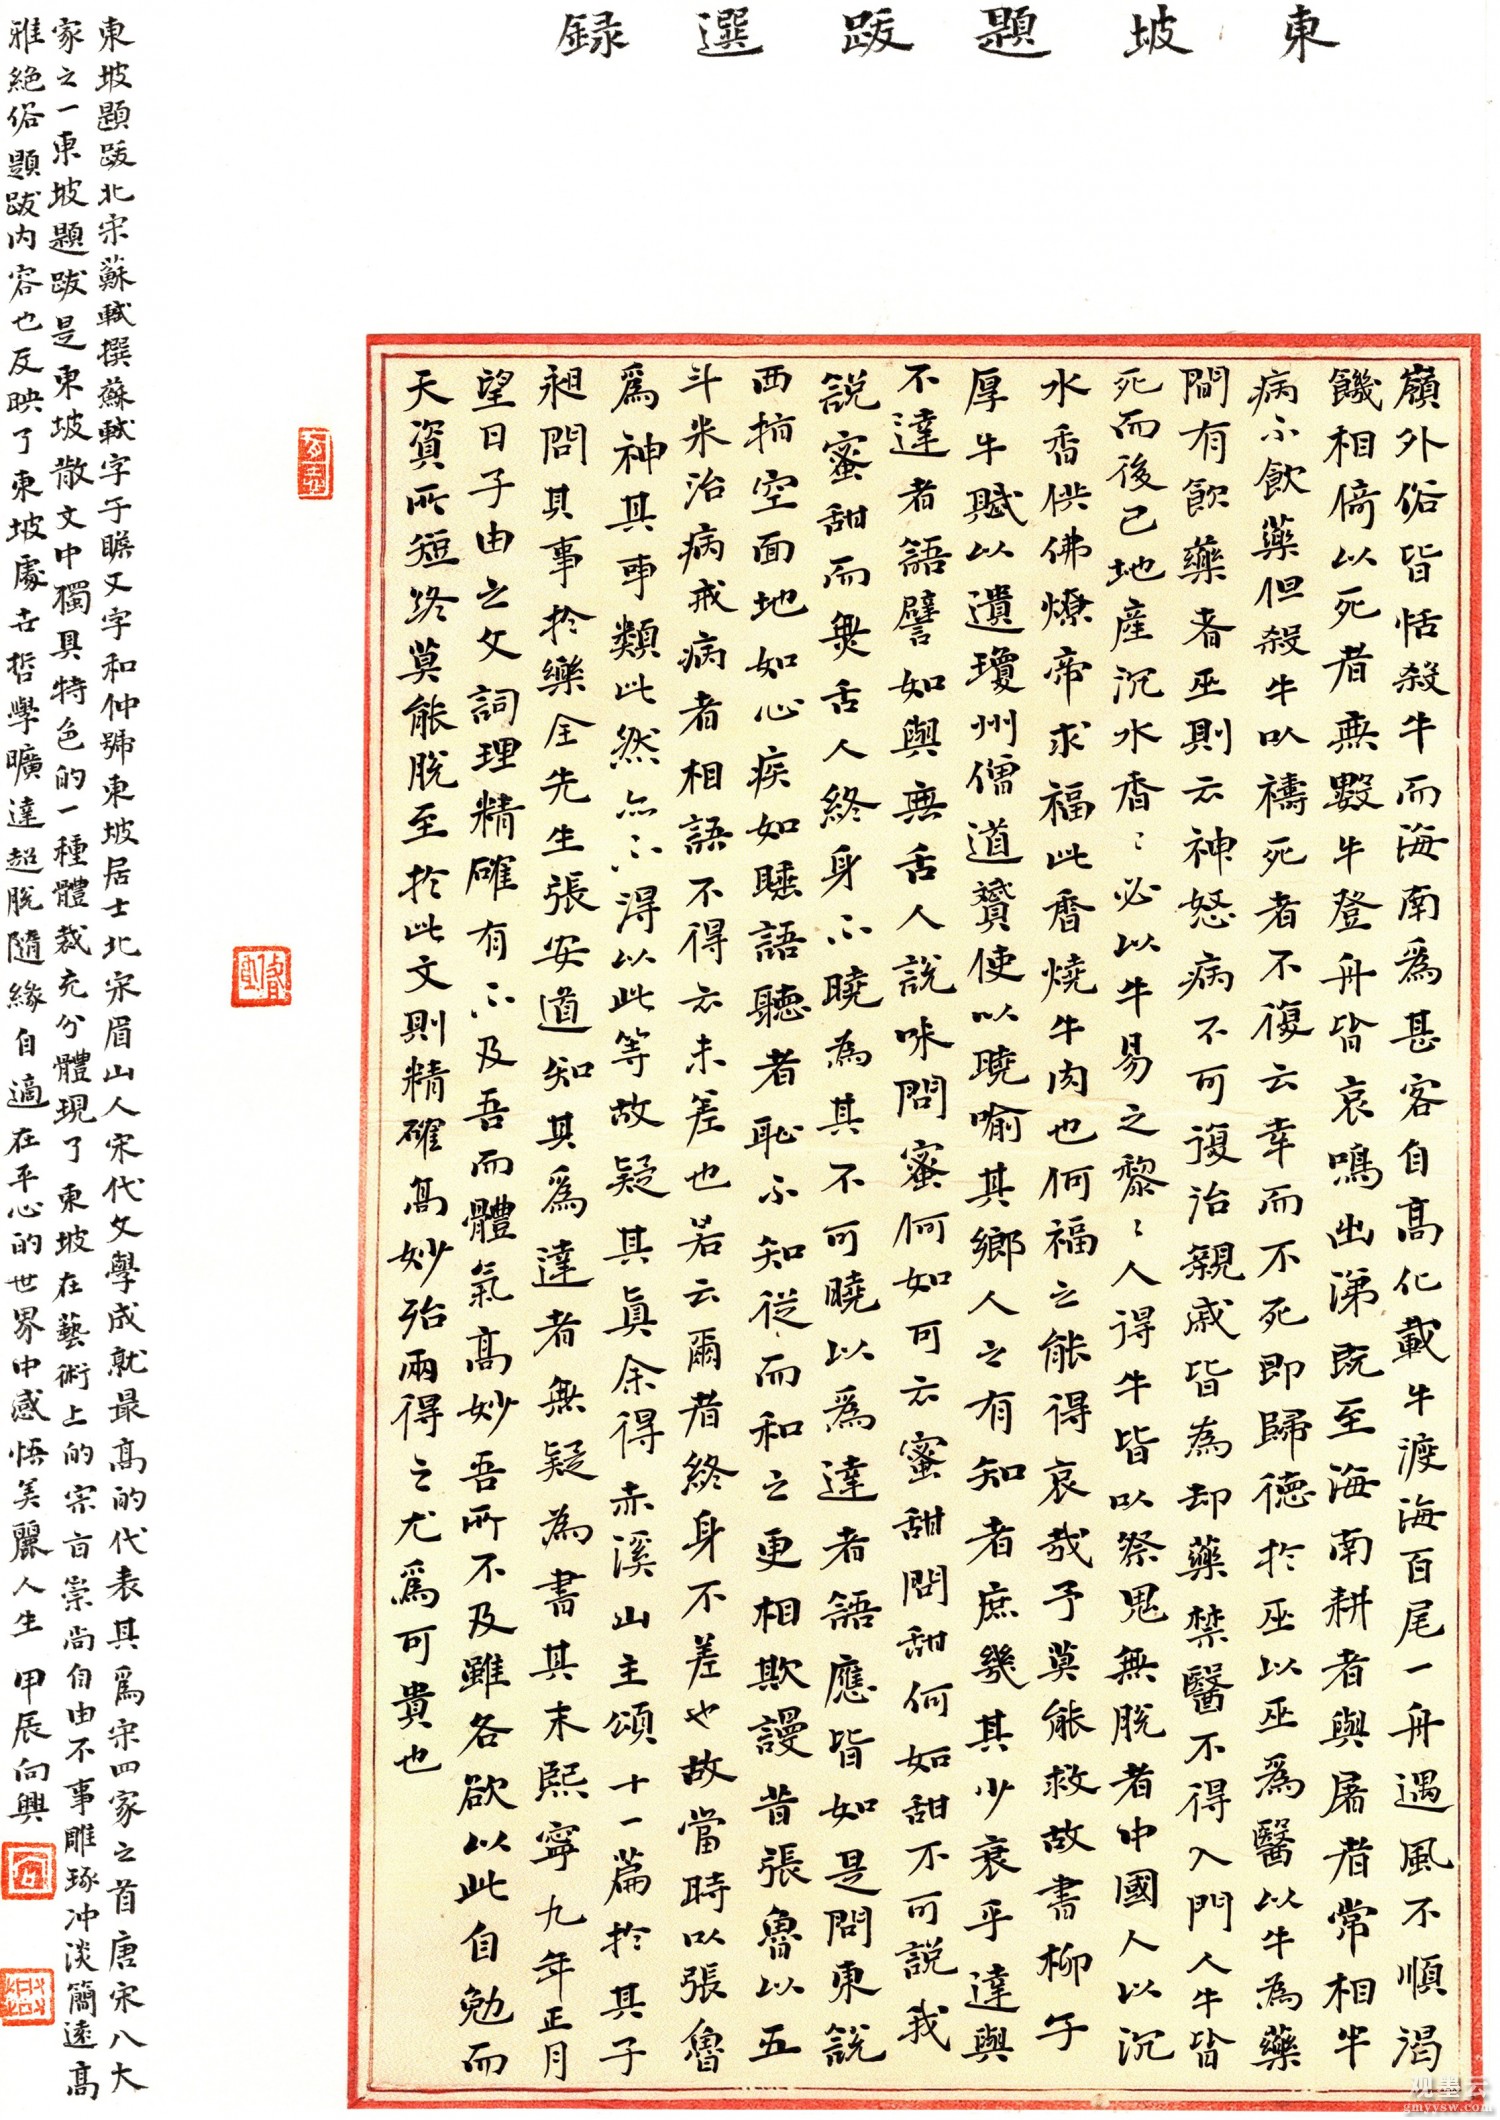 東坡題跋選録
嶺外俗皆恬殺牛而海南爲甚客自髙化載牛渡海百尾一舟遇風不順渴
饑相倚以死者無數牛登舟皆哀鳴出涕既至海南耕者與屠者常相半
病不飲藥但殺牛以禱死者不復云幸而不死即歸德於巫以巫爲醫以牛為藥
間有飲藥者巫則云神怒病不可復治親戚皆為却藥禁醫不得入門人牛皆
死而後已地產沉水香〻必以牛易之黎〻人得牛皆以祭鬼無脫者中國人以沉
水香供佛燎帝求福此香燒牛肉也何福之能得哀哉予莫能救故書柳子
厚牛賦以遺瓊州僧道贇使以曉喻其鄉人之有知者庶幾其少衰乎達與
不達者語譬如與無舌人說味問蜜何如可云蜜甜問甜何如甜不可說我
說蜜甜而無舌人終身不曉為其不可曉以爲達者語應皆如是問東說
西指空面地如心疾如睡語聽者恥不知從而和之更相欺謾昔張魯以五
斗米治病戒病者相語不得云未差也若云爾者終身不差也故當時以張魯
爲神其事類此然亦不得以此等故疑其真余得赤溪山主頌十一篇於其子
昶問其事於樂全先生張安道知其爲達者無疑為書其末熙寧九年正月
望日子由之文詞理精確有不及吾而體氣髙妙吾所不及雖各欲以此自勉而
天資所短終莫能脫至於此文則精確髙妙殆兩得之尤爲可貴也
東坡題跋北宋蘇軾撰蘇軾字子瞻又字和仲號東坡居士北宋眉山人宋代文學成就最髙的代表其爲宋四家之首唐宋八大
家之一東坡題跋是東坡散文中獨具特色的一種體裁充分體現了東坡在藝術上的宗旨崇尚自由不事雕琢冲淡簡遠髙
雅絶俗題跋内容也反映了東坡處世哲學曠達超脫隨緣自適在平心的世界中感悟美麗人生 甲辰向興
观墨云
gmyysw.com